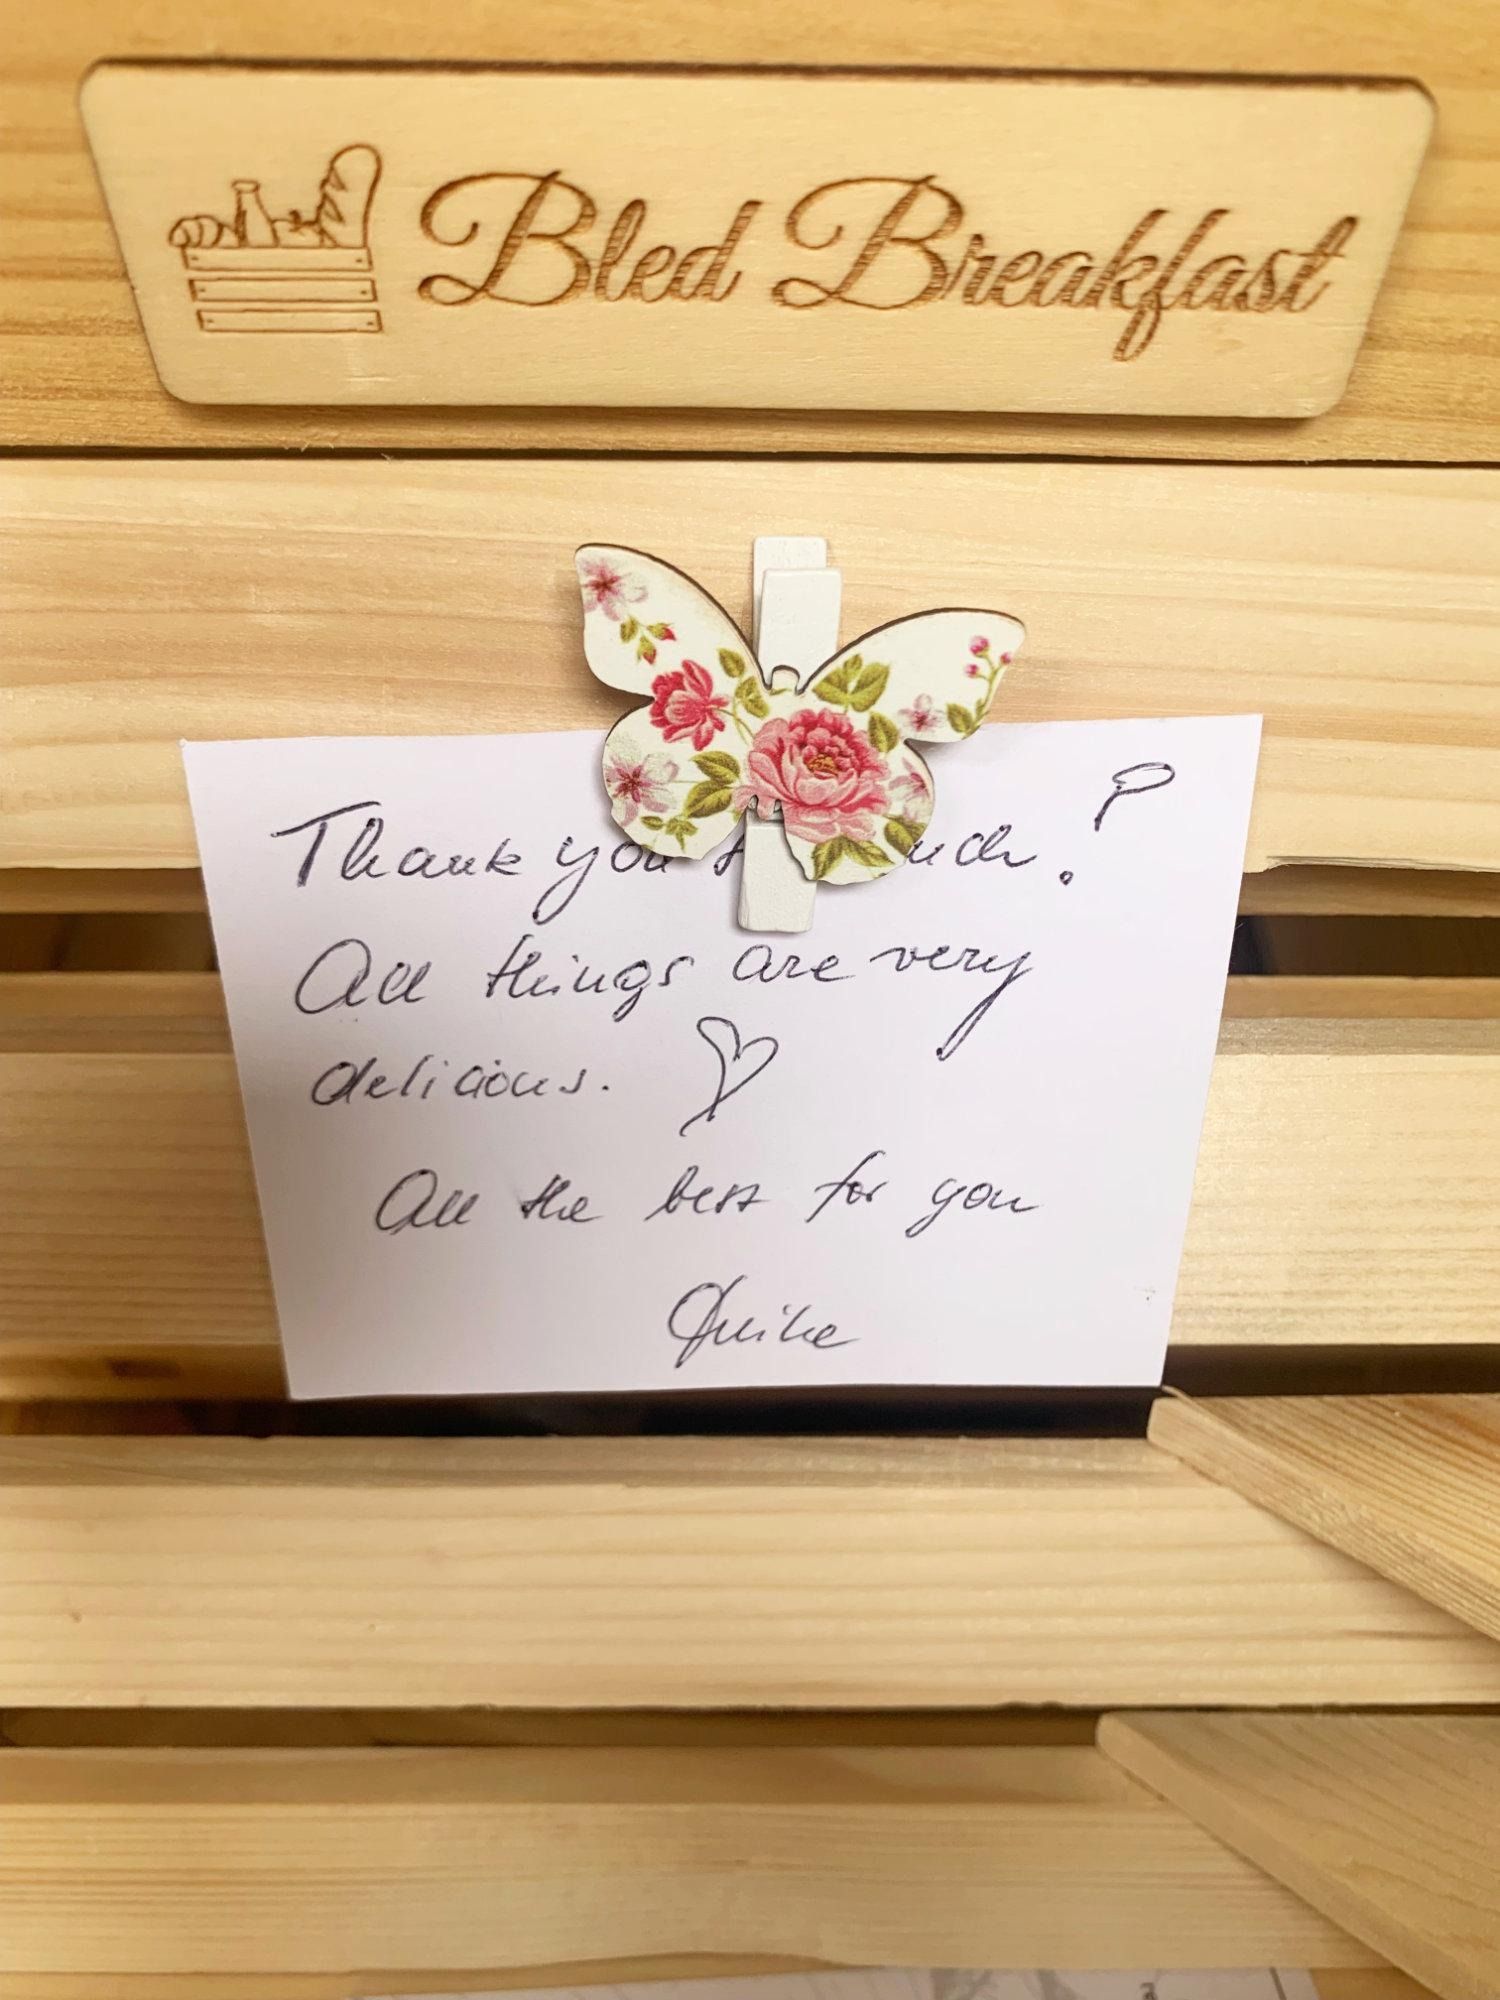 Bled Breakfast
Thank you uch!
All things are very
delicious. ♡
All the best for you